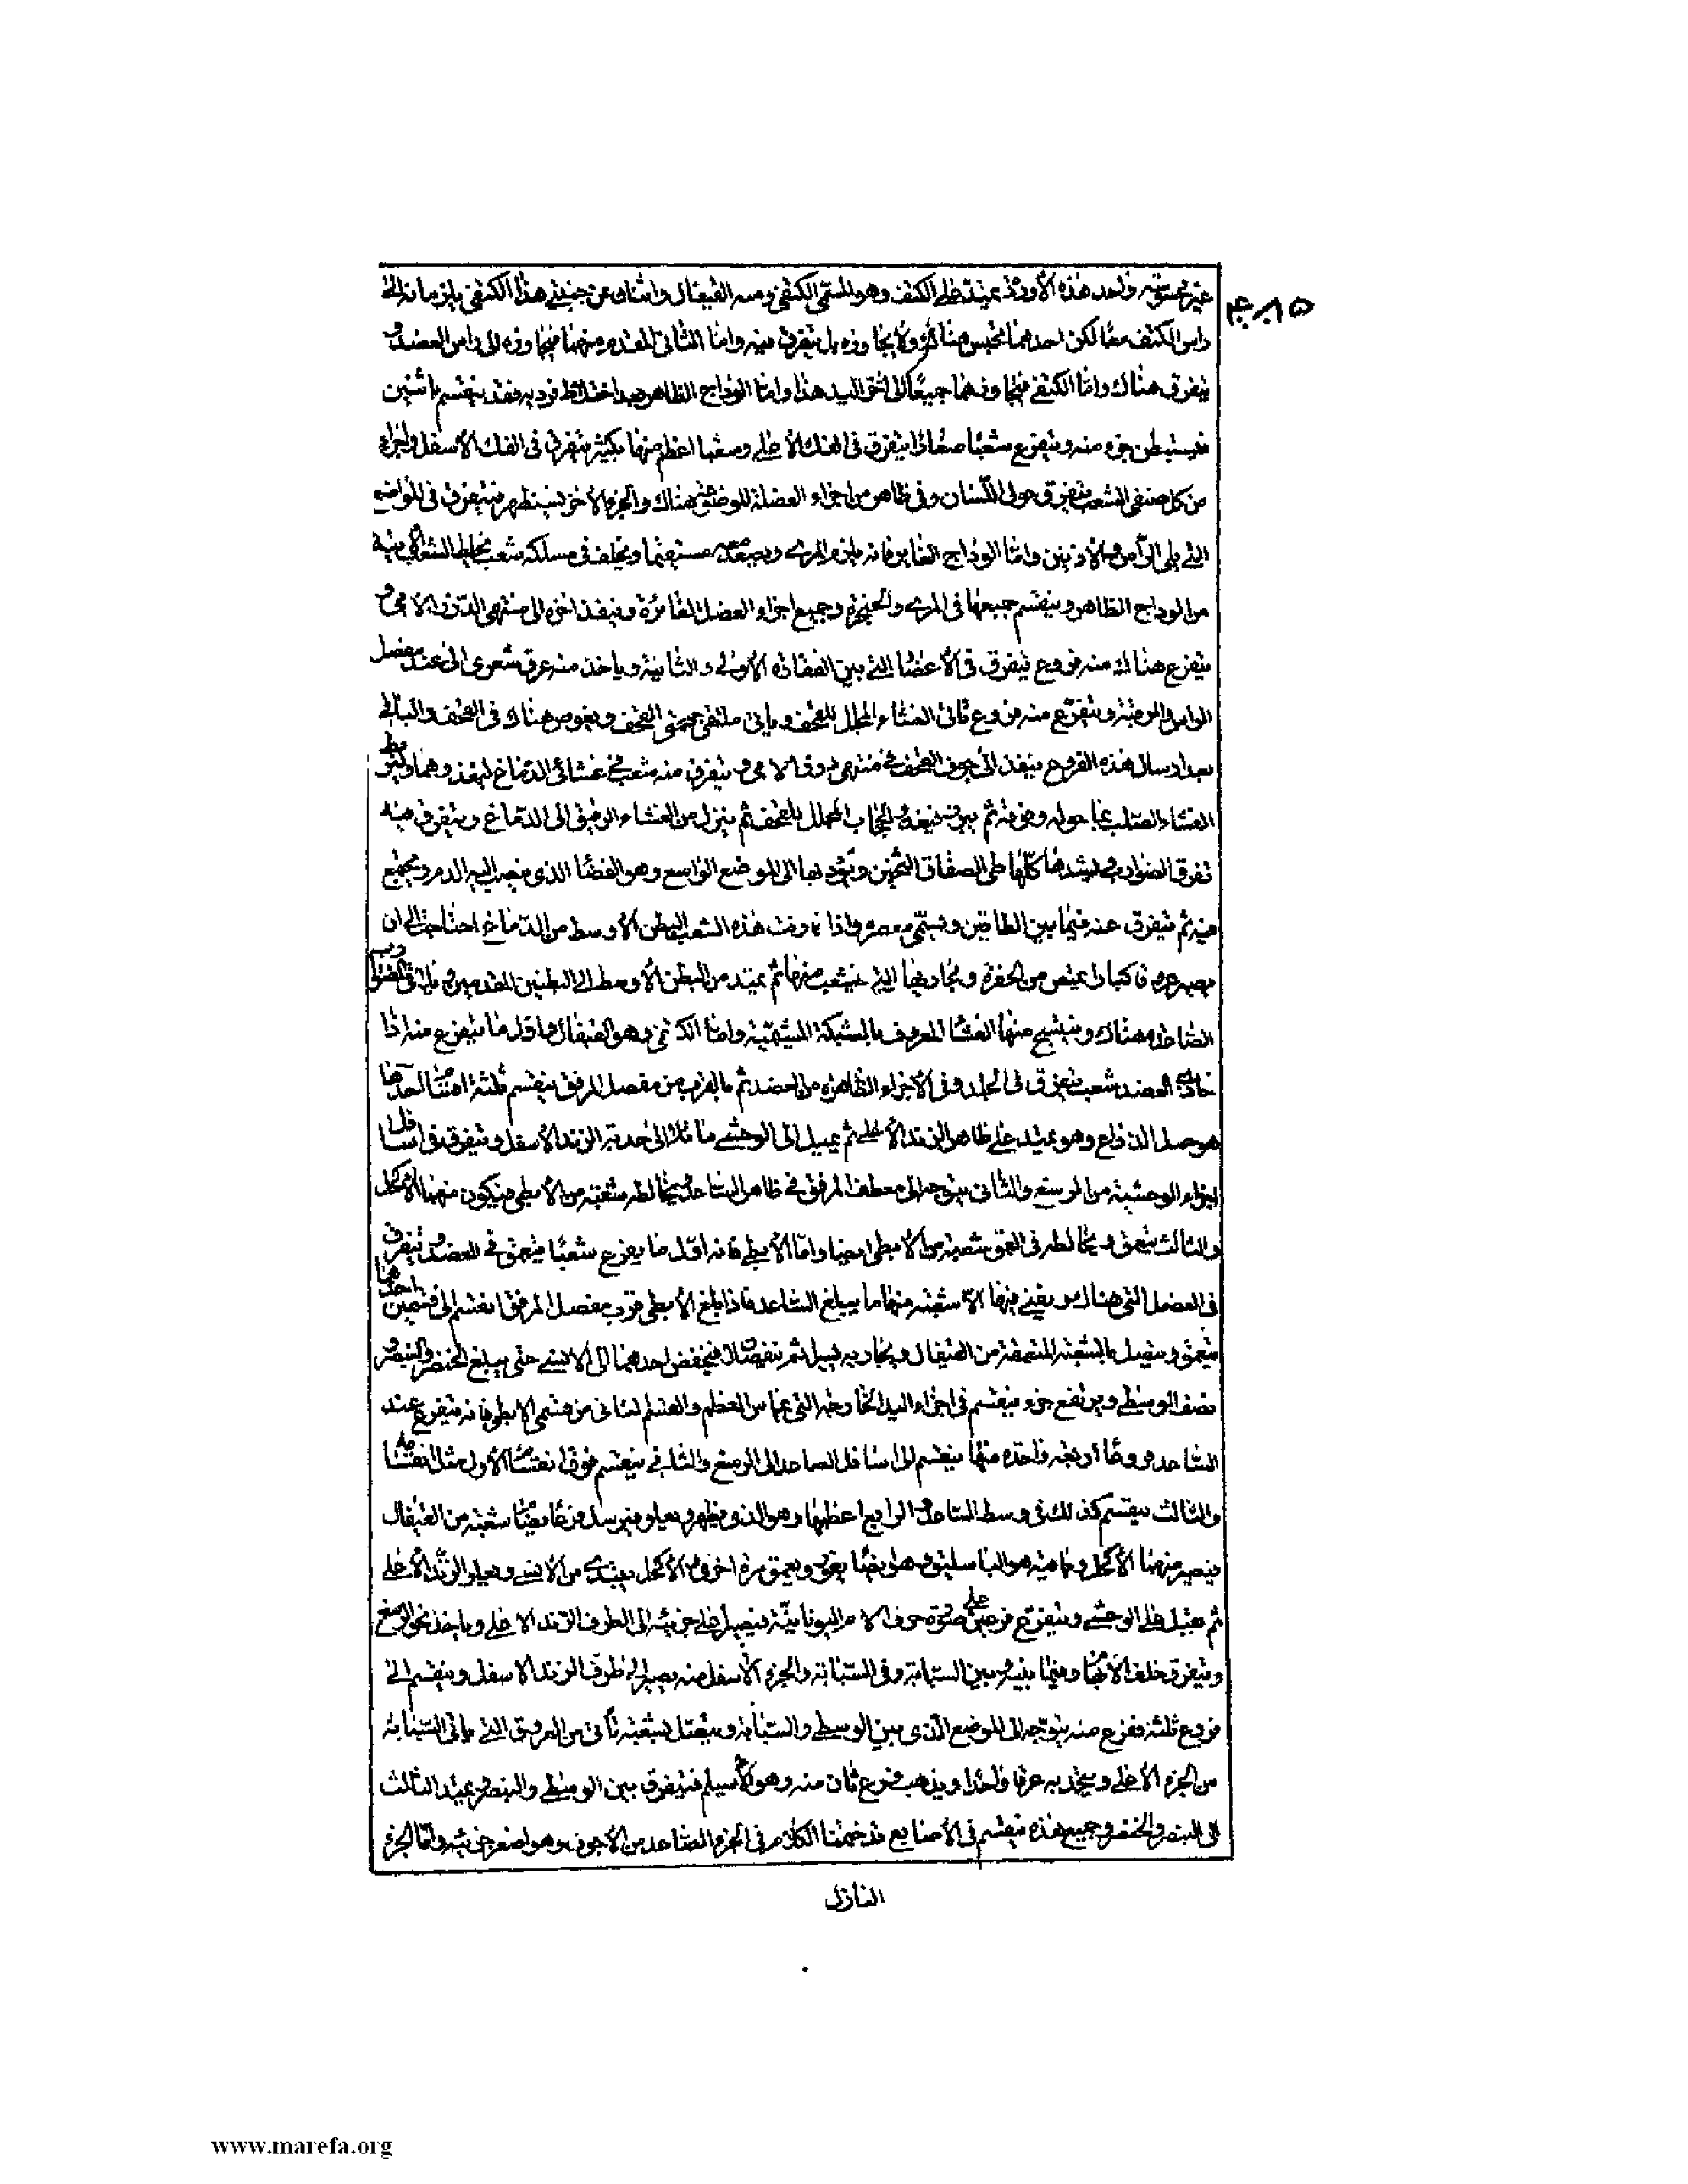 غير محسوسة وأحد هذه الأوردة يمتد على الكتف وهو المسمى الكتفي ومنه القيفال واثنان عن جنبتي هذا الكتفي يلزمانه إلى
رأس الكتف معًا لكن أحدهما يحتبس هناك ولا يجاوزه بل يتفرق فيه وأما الثاني المقدم منهما فيجاوزه إلى رأس العضد و
يتفرق هناك وأما الكتفي فيجاوزهما جميعًا إلى آخر اليد هذا وأما الوداج الظاهر بعد اختلاط فرديه فقد ينقسم باثنين
فيستبطن جزء منه ويتفرع شعبًا صغارًا يتفرق في الفك الأعلى وشعبا أعظم منها بكثير يتفرق في الفك الأسفل وأجزاء
من كل صنفي الشعب يتفرق حول اللسان وفي ظاهر من أجزاء العضلة الموضوعة هناك والجزء الآخر يستظهر فيتفرق في المواضع
التي يلي الرأس والأذنين وأما الوداج الغاير فانه يلزم المريء ويصعد معه مستقيما ويخلف في مسلكه شعبا يخالط الشعب الآتية
من الوداج الظاهر وينقسم جميعها في المريء والحنجرة وجميع أجزاء العضل الغائرة وينفذ آخره إلى منتهى الدرز اللامي و
يتفرع هناك منه فروع يتفرق في الأعضاء التي بين الفقارة الأولى والثانية ويأخذ منه عرق شعري إلى عند مفصل
الرأس والرقبة ويتفرع منه فروع تأتي الغشاء المجلل للقحف ويأتي ملتقى جمجمتي القحف ويغوص هناك في القحف والباقي
بعد إرسال هذه الفروع ينفذ إلى جوف القحف في منتهى درز اللامي ويتفرق منه شعب في غشائي الدماغ ليغذوهما وليربط
الغشاء الصلب بما حوله وفوقه ثم يبرز فيغذو الحجاب المجلل للقحف ثم ينزل من الغشاء الرقيق إلى الدماغ ويتفرق فيه
تفرق الضوارب ويشدها كلها طي الصفاق الثخين ويؤديها إلى الموضع الواسع وهو الفضاء الذي ينصب إليه الدم ويجتمع
فيه ثم يتفرق عنه فيما بين الطاقين ويسمى معصرة فاذا قاربت هذه الشعب البطن الأوسط من الدماغ احتاجت إلى أن
يصير عروقا كبارا يمتص من المعصرة ومجاريها التي يتشعب منها ثم يمتد من البطن الأوسط إلى البطنين المقدمين ويلاقي الضوارب
الصاعدة هناك وينتسج منها الغشاء المعروف بالشبكة المشيمية وأما الكتفي وهو القيفال فأول ما يتفرع منه إذا
حاذى العضد شعب يتفرق في الجلد وفي الأجزاء الظاهرة من العضد ثم بالقرب من مفصل المرفق ينقسم ثلثة أقسام أحدها
هو حبل الذراع وهو يمتد على ظاهر الزند الأعلى ثم يميل إلى الوحشي مائلا إلى حدبة الزند الأسفل ويتفرق في أسافل
أجزاء الوحشية من الرسغ والثاني يتوجه إلى معطف المرفق في ظاهر الساعد فيخالطه شعبة من الإبطي فيكون منهما الأكحل
والثالث يتعمق ويخالطه في العمق شعبة من الإبطي أيضا وأما الإبطي فانه أول ما يفرع شعبًا يتعمق في العضد ويتفرق
في العضل التي هناك ويفنى فيها إلا شعبة منها ما يبلغ الساعد فاذا بلغ الإبطي قرب مفصل المرفق انقسم إلى قسمين أحدهما
يتعمق ويتصل بالشعبة المتعمقة من القيفال ويجاريه يسيرا ثم ينفصلان فيخفض أحدهما إلى الأنسي حتى يبلغ الخنصر والبنصر و
نصف الوسطى ويرتفع جزء ينقسم في أجزاء اليد الخارجة التي تماس العظم والقسم الثاني من قسمي الإبطي فانه يتفرع عند
الساعد فروعًا أربعة واحدة منها ينقسم إلى أسافل الساعد إلى الرسغ والثاني ينقسم فوق انقسام الأول مثل انقسامه
والثالث ينقسم كذلك في وسط الساعد والرابع أعظمها وهو الذي يظهر ويعلو فيرسل فرعًا يضام شعبة من القيفال
فيصير منهما الأكحل وباقيه هو الباسليق وهو أيضا يغور ويعمق مرة أخرى والأكحل يبتدي من الأنسي ويعلو الزند الأعلى
ثم يقبل على الوحشي ويتفرع فرعين على صورة حرف اللام اليونانية فيصير أعلى جزئيه إلى الطرف الزند الأعلى ويأخذ نحو الرسغ
ويتفرق خلف الإبهام وفيما بينه وبين السبابة وفي السبابة والجزء الأسفل منه يصير إلى طرف الزند الأسفل وينقسم إلى
فروع ثلثة ففرع منه يتوجه إلى الموضع الذي بين الوسطى والسبابة ويتصل بشعبة تأتي من العرق التي يأتي السبابة
من الجزء الأعلى ويتحد به عرقا واحدًا ويذهب فرع ثان منه وهو الأسيلم فيتفرق بين الوسطى والبنصر ويمتد الثالث
إلى البنصر والخنصر وجميع هذه ينقسم في الأصابع قد ختمنا الكلام في الجزء الصاعد من الأجوف وهو أصغر جزئيه وأما الجزء
النازل
www.marefa.org